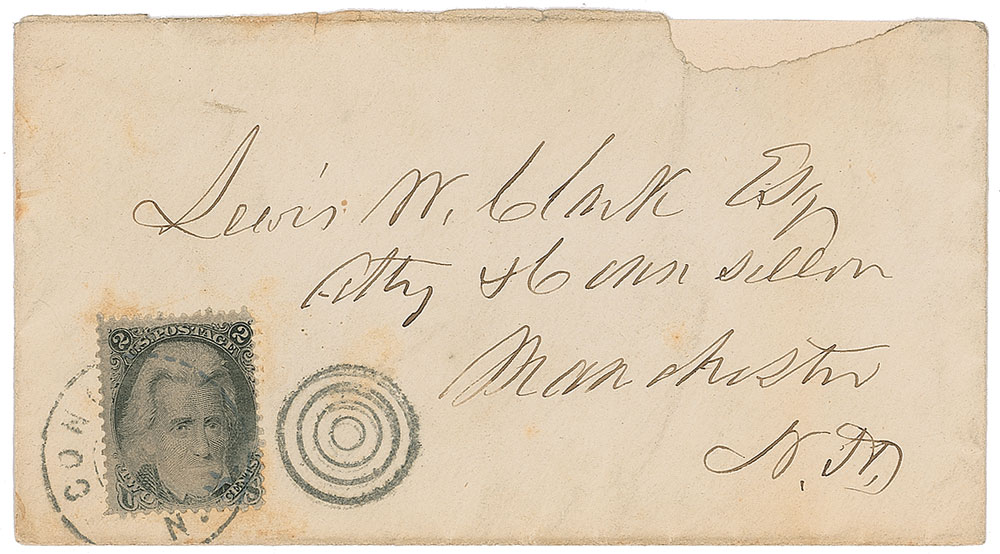 Lewis W. Clark Esq
Atty & Counsellor
Manchester
N. H.
2 2
U.S. POSTAGE
TWO CENTS
CON
N.